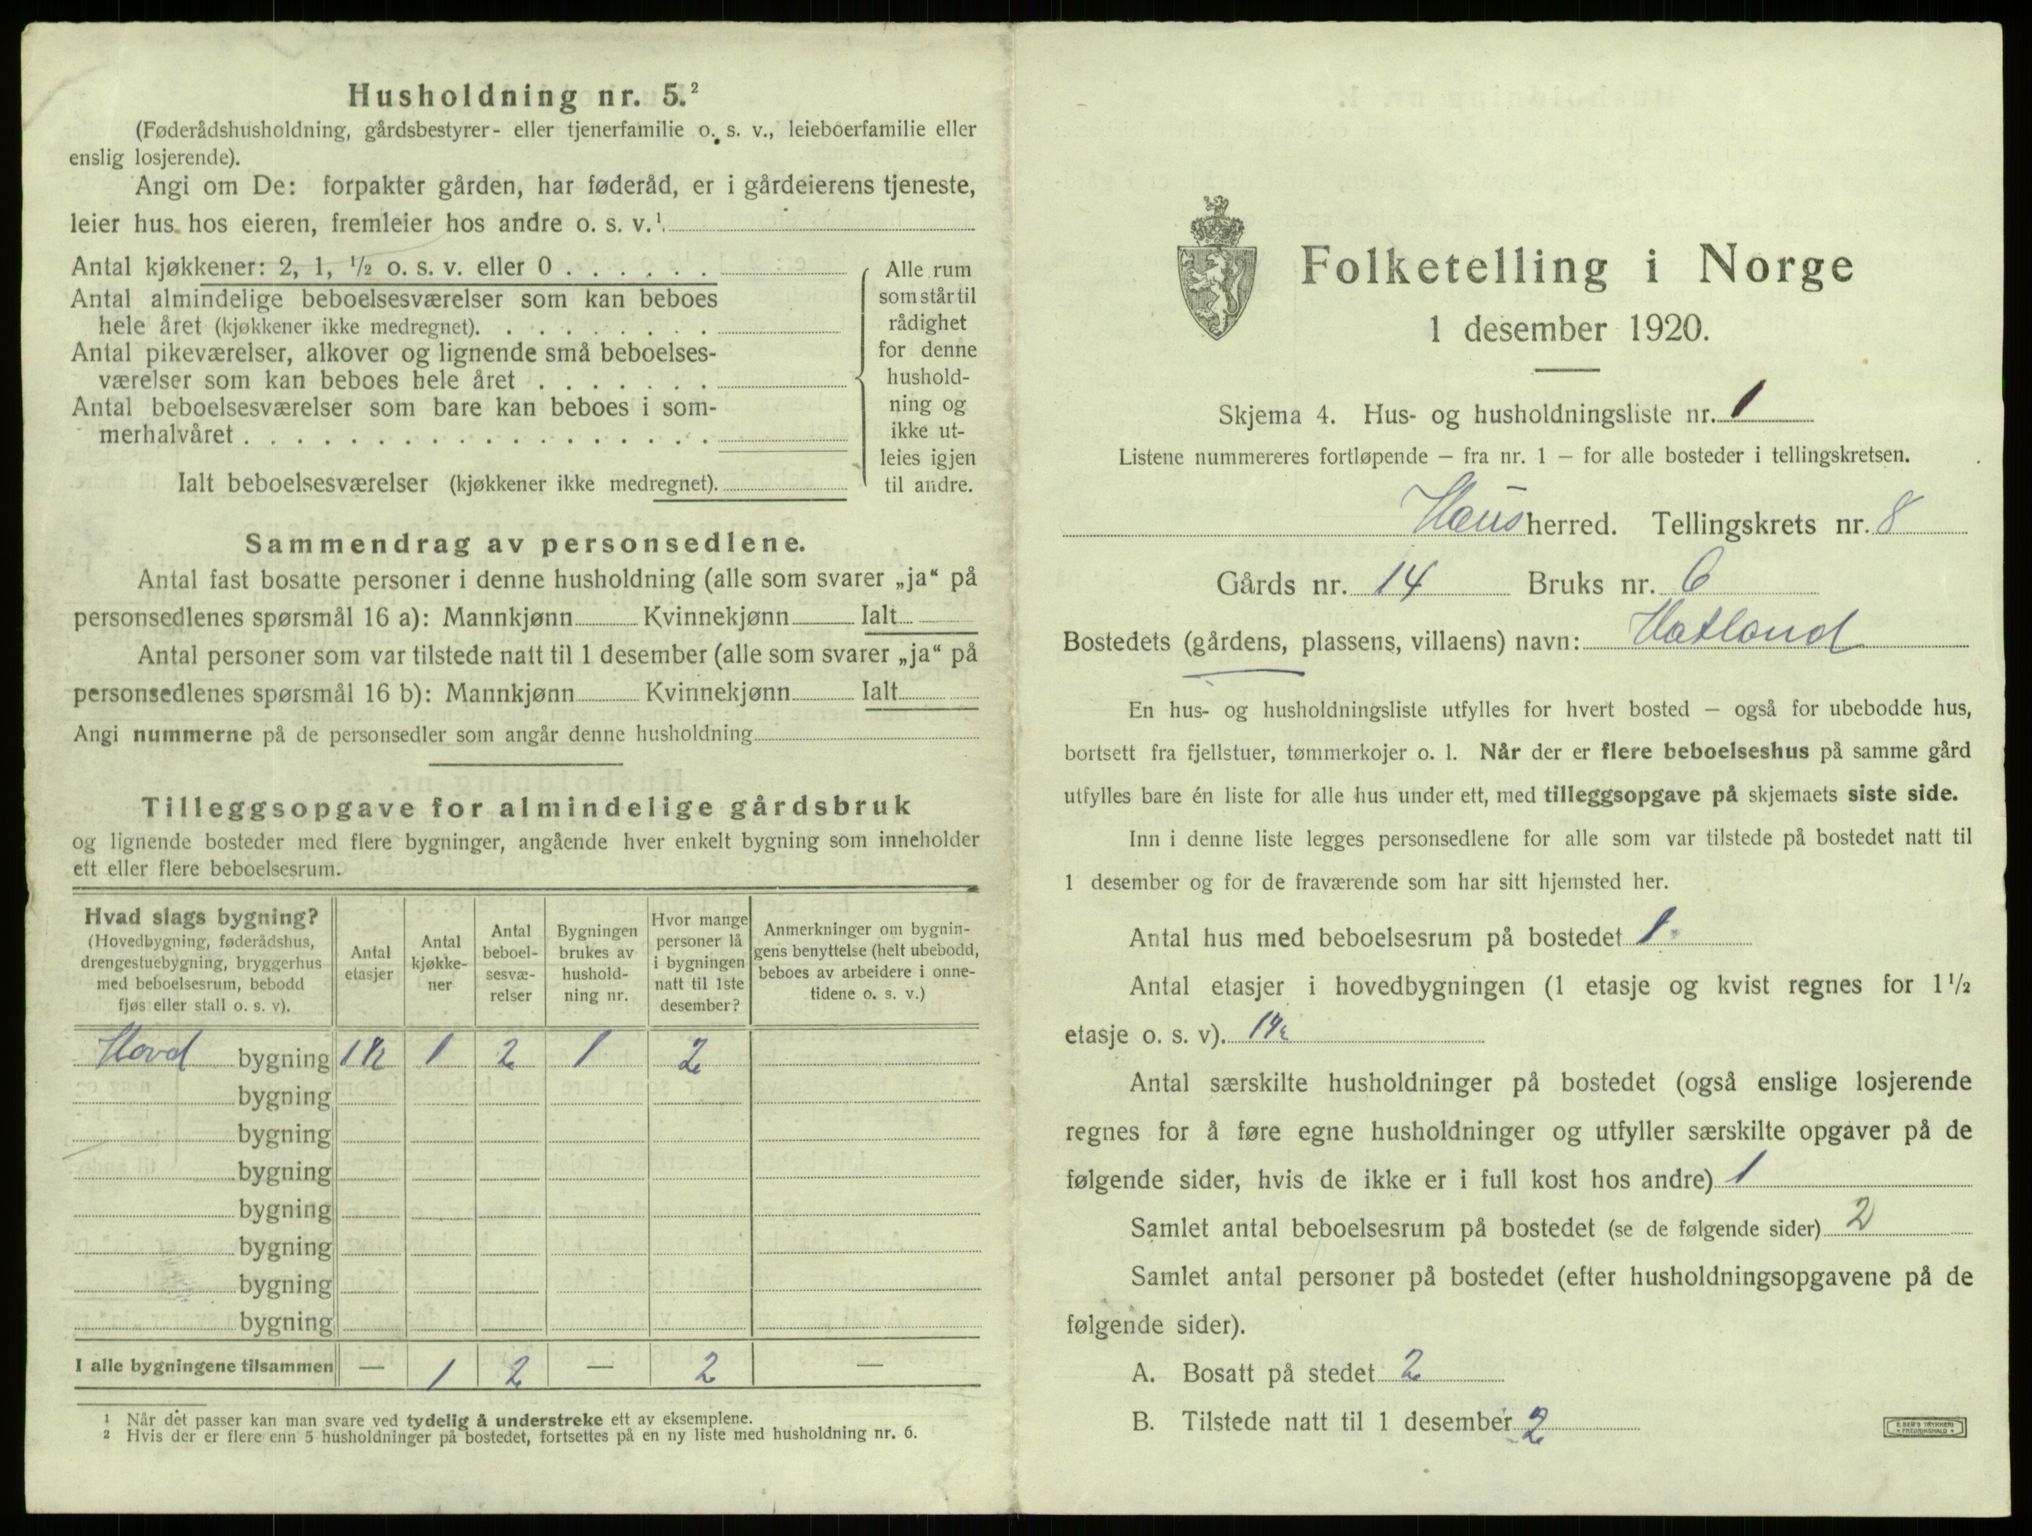 Husholdning nr. 5.²
(Føderådshusholdning, gårdsbestyrer- eller tjenerfamilie o. s. v., leieboerfamilie eller
enslig losjerende).
Angi om De: forpakter gården, har føderåd, er i gårdeierens tjeneste,
leier hus hos eieren, fremleier hos andre o. s. v.¹
Antal kjøkkener: 2, 1, ½ o. s. v. eller 0 . . . . . .
Antal almindelige beboelsesværelser som kan beboes
hele året (kjøkkener ikke medregnet). . . . . . . . .
Antal pikeværelser, alkover og lignende små beboelses-
værelser som kan beboes hele året . . . . . . .
Antal beboelsesværelser som bare kan beboes i som-
merhalvåret . . . . . . . . . . . . . . . . . .
Ialt beboelsesværelser (kjøkkener ikke medregnet).
Alle rum
som står til
rådighet
for denne
hushold-
ning og
ikke ut-
leies igjen
til andre.
Sammendrag av personsedlene.
Antal fast bosatte personer i denne husholdning (alle som svarer „ja“ på
personsedlenes spørsmål 16 a): Mannkjønn Kvinnekjønn Ialt
Antal personer som var tilstede natt til 1 desember (alle som svarer „ja“ på
personsedlenes spørsmål 16 b): Mannkjønn Kvinnekjønn Ialt
Angi nummerne på de personsedler som angår denne husholdning
Tilleggsopgave for almindelige gårdsbruk
og lignende bosteder med flere bygninger, angående hver enkelt bygning som inneholder
ett eller flere beboelsesrum.
Hvad slags bygning?
(Hovedbygning, føderådshus,
drengestuebygning, bryggerhus
med beboelsesrum, bebodd
fjøs eller stall o. s. v).
Antal
etasjer
Antal
kjøkke-
ner
Antal
beboel-
sesvæ-
relser
Bygningen
brukes av
hushold-
ning nr.
Hvor mange
personer lå
i bygningen
natt til 1ste
desember?
Anmerkninger om bygnin-
gens benyttelse (helt ubebodd,
beboes av arbeidere i onne-
tidene o. s. v.)
Hovd bygning 1½ 1 2 1 2
bygning
bygning
bygning
bygning
bygning
bygning
bygning
I alle bygningene tilsammen — 1 2 — 2 —
¹ Når det passer kan man svare ved tydelig å understreke ett av eksemplene.
² Hvis der er flere enn 5 husholdninger på bostedet, fortsettes på en ny liste med husholdning nr. 6.
Folketelling i Norge
1 desember 1920.
Skjema 4. Hus- og husholdningsliste nr. 1
Listene nummereres fortløpende – fra nr. 1 – for alle bosteder i tellingskretsen.
Haus herred. Tellingskrets nr. 8
Gårds nr. 14 Bruks nr. 6
Bostedets (gårdens, plassens, villaens) navn: Hatland
En hus- og husholdningsliste utfylles for hvert bosted – også for ubebodde hus,
bortsett fra fjellstuer, tømmerkojer o. l. Når der er flere beboelseshus på samme gård
utfylles bare én liste for alle hus under ett, med tilleggsopgave på skjemaets siste side.
Inn i denne liste legges personsedlene for alle som var tilstede på bostedet natt til
1 desember og for de fraværende som har sitt hjemsted her.
Antal hus med beboelsesrum på bostedet 1
Antal etasjer i hovedbygningen (1 etasje og kvist regnes for 1½
etasje o. s. v). 1½
Antal særskilte husholdninger på bostedet (også enslige losjerende
regnes for å føre egne husholdninger og utfyller særskilte opgaver på de
følgende sider, hvis de ikke er i full kost hos andre) 1
Samlet antal beboelsesrum på bostedet (se de følgende sider) 2
Samlet antal personer på bostedet (efter husholdningsopgavene på de
følgende sider).
A. Bosatt på stedet 2
B. Tilstede natt til 1 desember 2
E. SEM'S TRYKKERI
• FREDRIKSHALD •